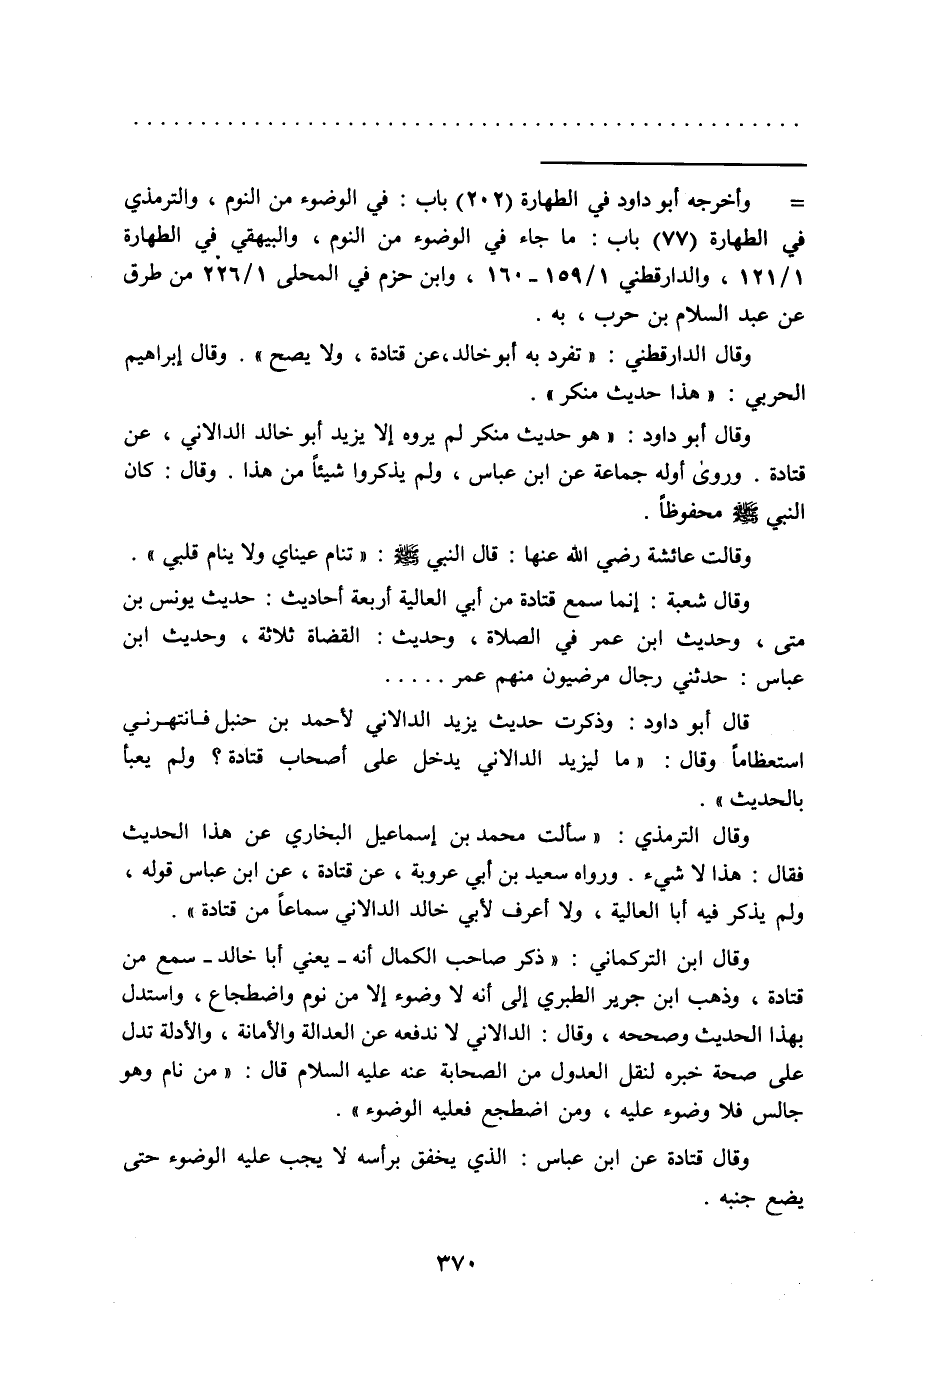 . . . . . . . . . . . . . . . . . . . . . . . . . . . . . . . . . . . . . . . . . . . . . . . . . .
= وأخرجه أبو داود في الطهارة (٢٠٢) باب : في الوضوء من النوم ، والترمذي
في الطهارة (٧٧) باب : ما جاء في الوضوء من النوم ، والبيهقي في الطهارة
١٢١/١ ، والدارقطني ١٥٩/١ ـ ١٦٠ ، وابن حزم في المحلى ٢٢٦/١ من طرق
عن عبد السلام بن حرب ، به .
وقال الدارقطني : « تفرد به أبو خالد،عن قتادة ، ولا يصح » . وقال إبراهيم
الحربي : « هذا حديث منكر » .
وقال أبو داود : « هو حديث منكر لم يروه إلا يزيد أبو خالد الدالاني ، عن
قتادة . وروىٰ أوله جماعة عن ابن عباس ، ولم يذكروا شيئاً من هذا . وقال : كان
النبي ﷺ محفوظاً .
وقالت عائشة رضي الله عنها : قال النبي ﷺ : « تنام عيناي ولا ينام قلبي » .
وقال شعبة : إنما سمع قتادة من أبي العالية أربعة أحاديث : حديث يونس بن
متى ، وحديث ابن عمر في الصلاة ، وحديث : القضاة ثلاثة ، وحديث ابن
عباس : حدثني رجال مرضيون منهم عمر . . . . .
قال أبو داود : وذكرت حديث يزيد الدالاني لأحمد بن حنبل فـانتهـرنـي
استعظاماً وقال : « ما ليزيد الدالاني يدخل على أصحاب قتادة ؟ ولم يعبأ
بالحديث » .
وقال الترمذي : « سألت محمد بن إسماعيل البخاري عن هذا الحديث
فقال : هذا لا شيء . ورواه سعيد بن أبي عروبة ، عن قتادة ، عن ابن عباس قوله ،
ولم يذكر فيه أبا العالية ، ولا أعرف لأبي خالد الدالاني سماعاً من قتادة » .
وقال ابن التركماني : « ذكر صاحب الكمال أنه ـ يعني أبا خالد ـ سمع من
قتادة ، وذهب ابن جرير الطبري إلى أنه لا وضوء إلا من نوم واضطجاع ، واستدل
بهذا الحديث وصححه ، وقال : الدالاني لا ندفعه عن العدالة والأمانة ، والأدلة تدل
على صحة خبره لنقل العدول من الصحابة عنه عليه السلام قال : « من نام وهو
جالس فلا وضوء عليه ، ومن اضطجع فعليه الوضوء » .
وقال قتادة عن ابن عباس : الذي يخفق برأسه لا يجب عليه الوضوء حتى
يضع جنبه .
٣٧٠